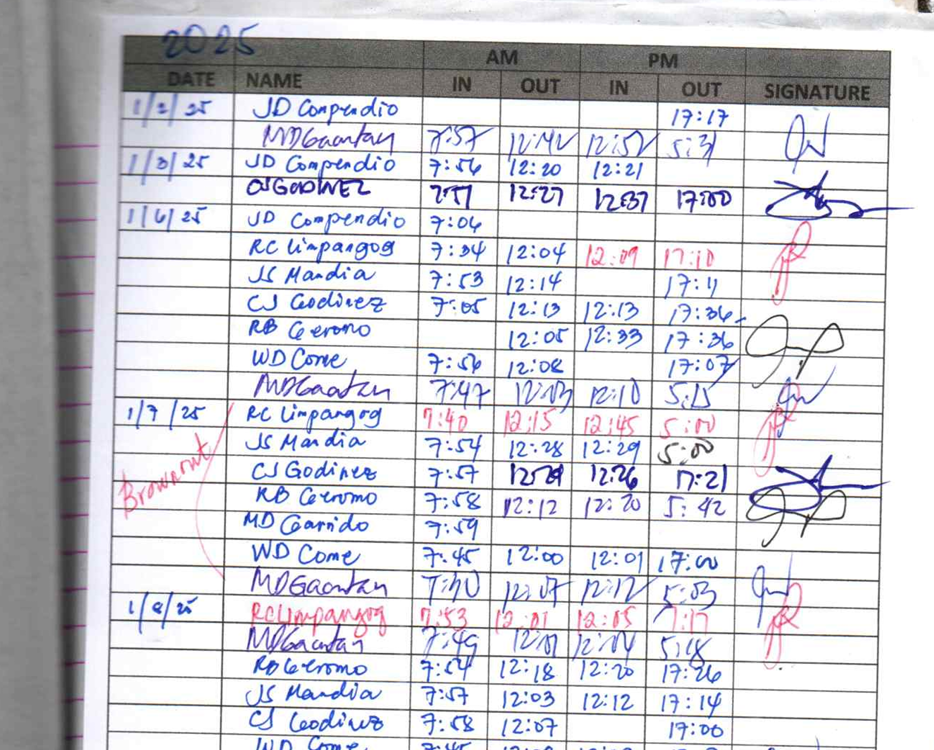 2025
AM PM
DATE NAME IN OUT IN OUT SIGNATURE
1/2/25 JD Compendio 17:17
MDGaantan 7:57 12:42 12:52 5:31
1/3/25 JD Compendio 7:56 12:20 12:21
CJ GODINEZ 7:51 12:27 12:37 17:00
1/6/25 JD Compendio 7:06
RC Limpangog 7:34 12:04 12:09 17:10
JS Mandia 7:53 12:14 17:11
CJ Godinez 7:05 12:13 12:13 17:36
RB Geromo 12:05 12:33 17:36
WD Come 7:56 12:08 17:07
MDGaantan 7:47 12:03 12:10 5:15
1/7/25 RC Limpangog 7:40 12:15 12:45 5:00
JS Mandia 7:54 12:28 12:29 5:00
Brownout
CJ Godinez 7:57 12:26 17:21
RB Geromo 7:58 12:12 12:20 5:42
MD Garrido 7:59
WD Come 7:45 12:00 12:01 17:00
MDGaantan 7:30 12:07 12:12 5:03
1/8/25 RC Limpangog 7:53 12:01 12:05 7:17
MDGaantan 7:49 12:01 12:04 5:18
RB Geromo 7:54 12:18 12:20 17:26
JS Mandia 7:57 12:03 12:12 17:14
CJ Godinez 7:58 12:07 17:00
WD Come 7:45